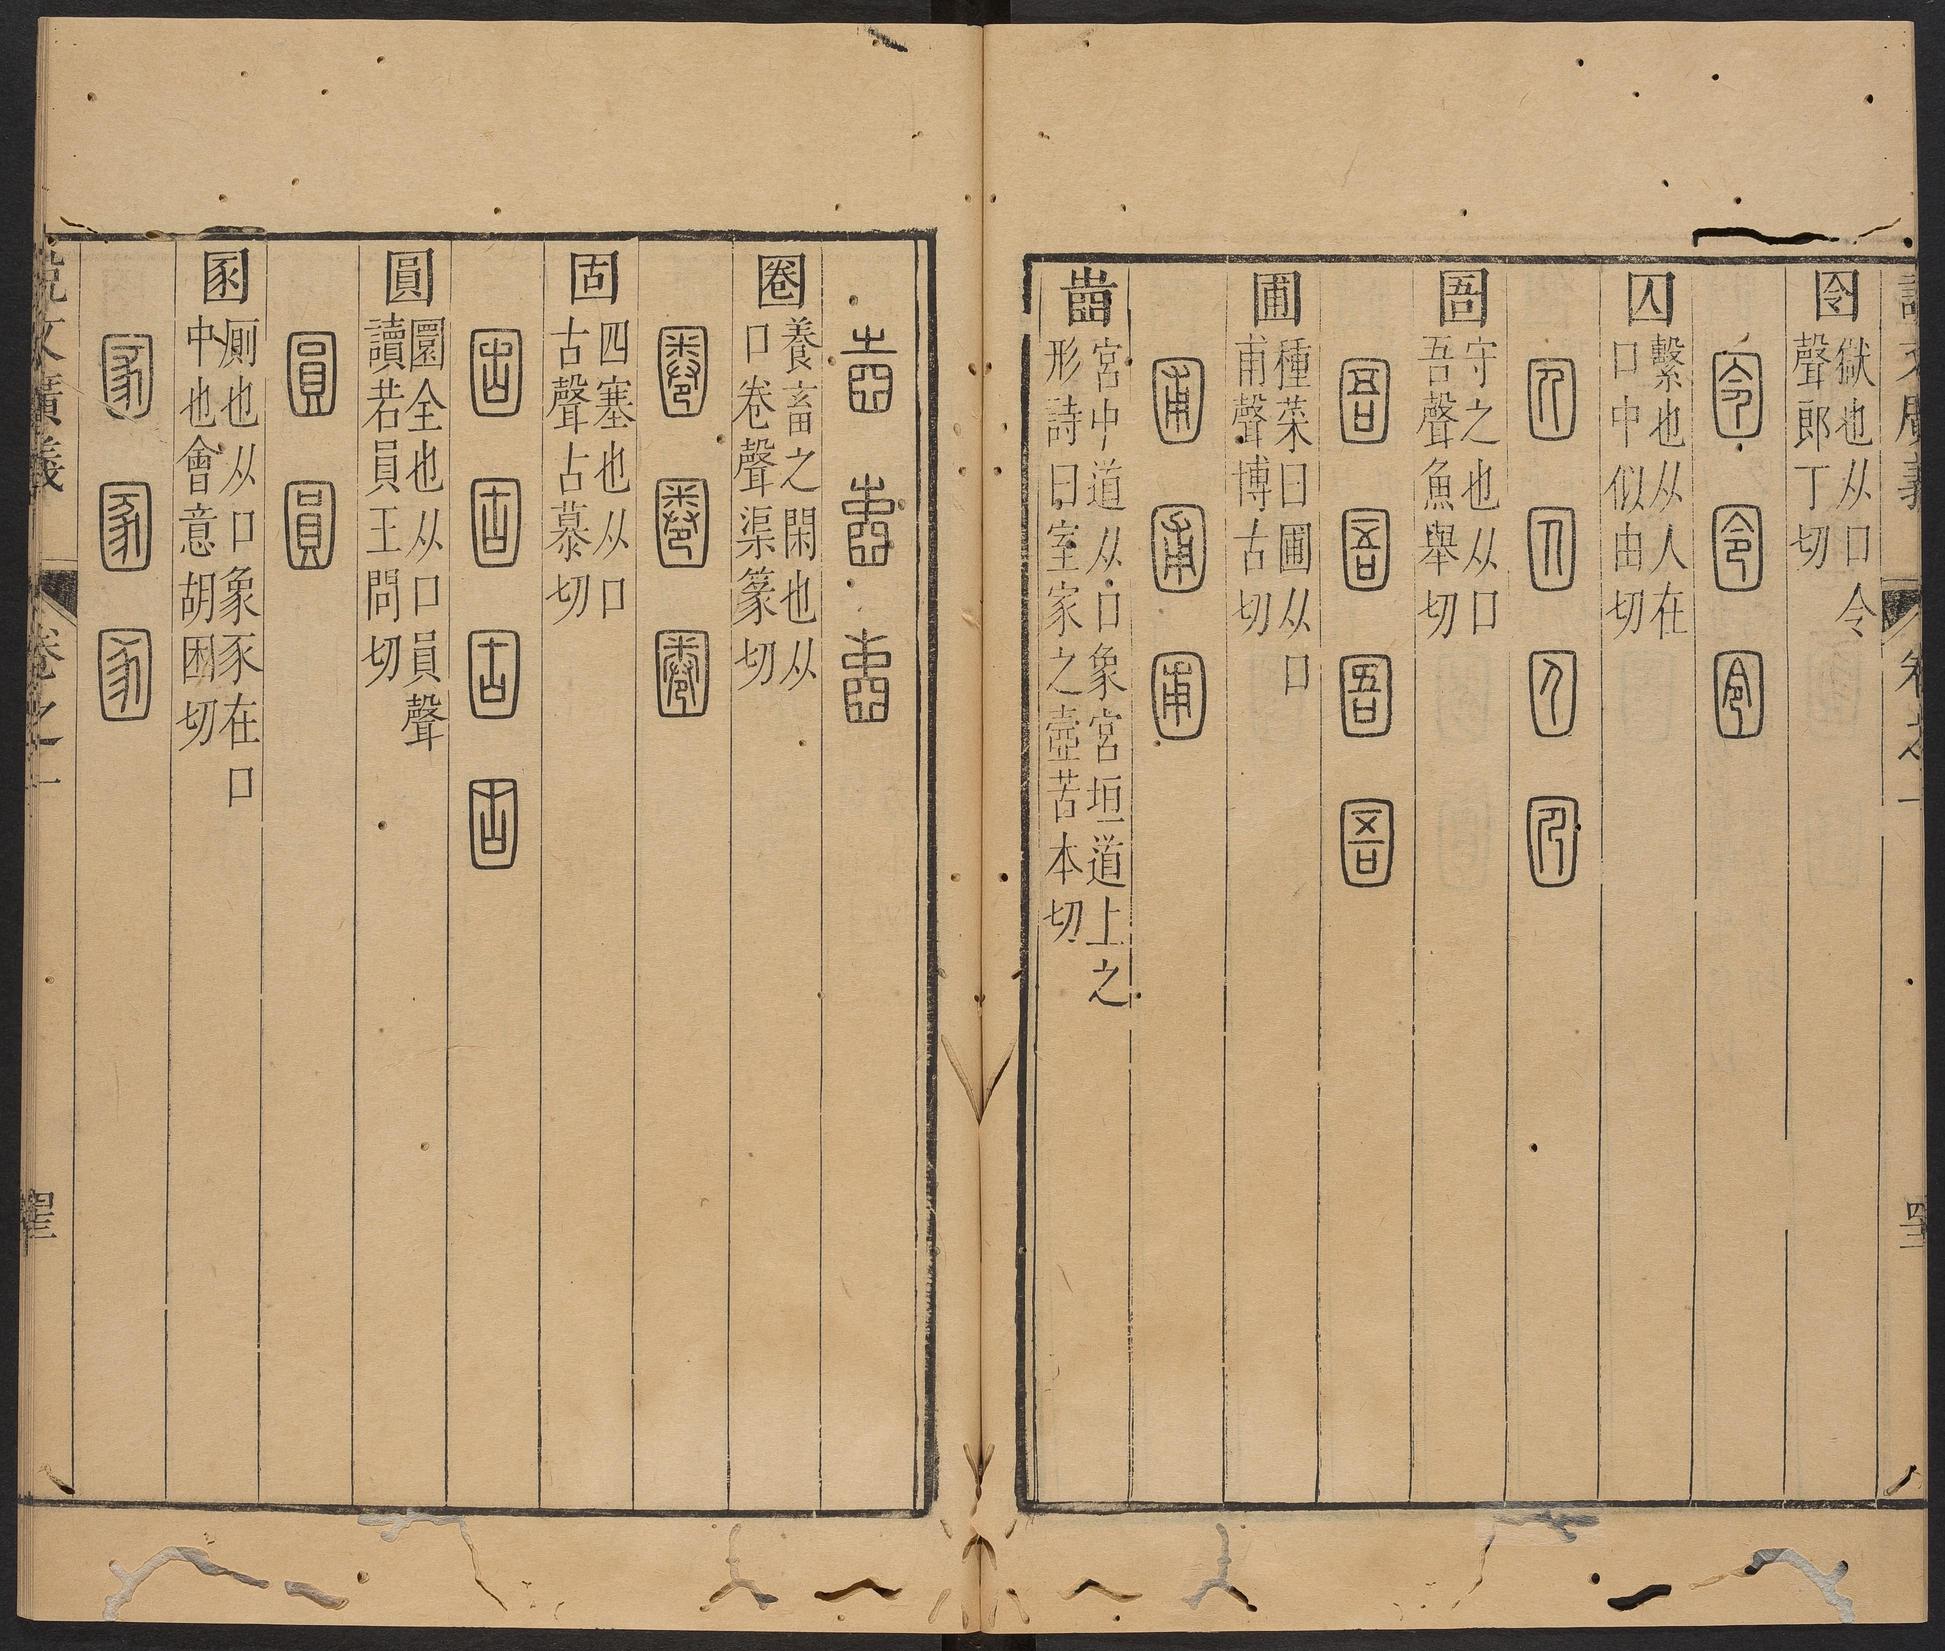 說文廣義
卷之一
囹
獄也从口令
聲郎丁切
令 令 令
囚
繫也从人在
口中似由切
人 人 人 人
圄
守之也从口
吾聲魚舉切
吾 吾 吾 吾
圃
種菜曰圃从口
甫聲博古切
甫 甫 甫
壼
宮中道从口象宮垣道上之
形詩曰室家之壼苦本切
壼 壼 壼
圈
養畜之閑也从
口卷聲渠篆切
圈 圈 圈
固
四塞也从口
古聲古慕切
固 固 固 固
圓
圜全也从口員聲
讀若員王問切
圓 圓
圂
厠也从口象豕在口
中也會意胡困切
圂 圂 圂
說文廣義
卷之一